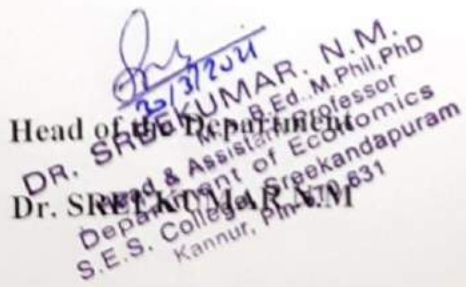 20/3/2021
Head of the Department
Dr. SREEKUMAR N.M
DR. SREEKUMAR, N.M.
B.Ed., M.Phil, PhD
Head & Assistant Professor
Department of Economics
S.E.S. College, Sreekandapuram
Kannur, Pin-670 631